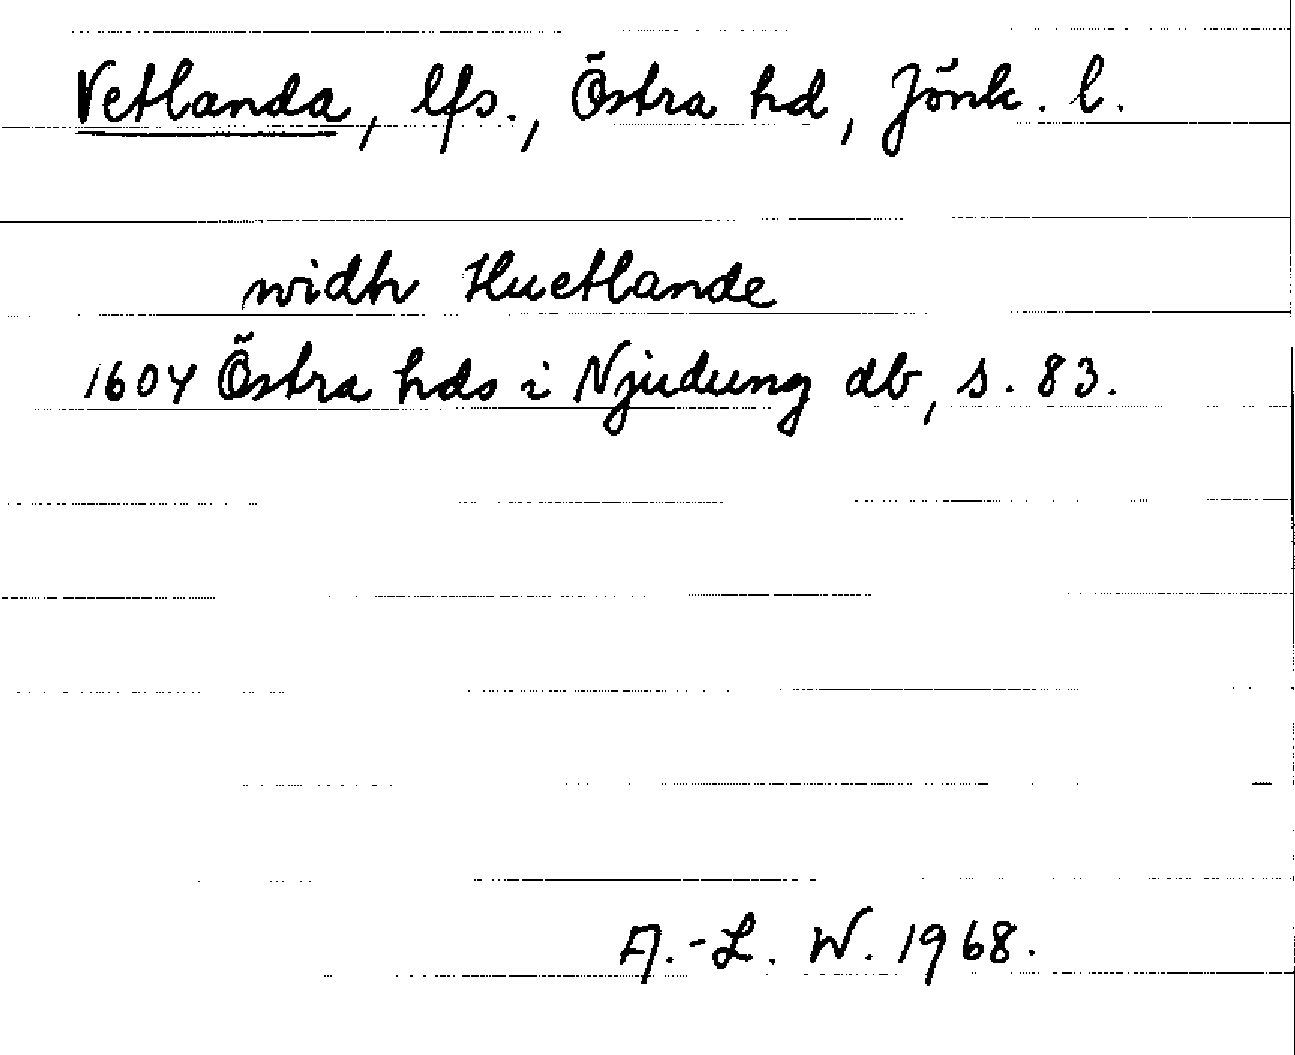 Vetlanda, lfs., Östra hd, Jönk. l.
widh Huetlande
1604 Östra hds i Njudung db, s. 83.
A.-L. W. 1968.